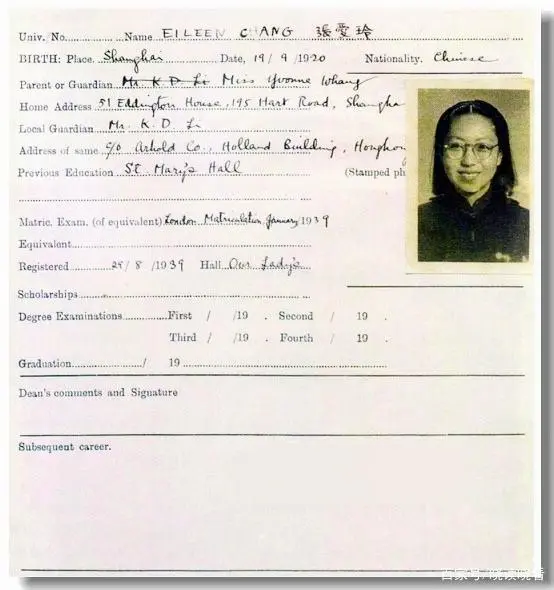 Univ. No. Name EILEEN CHANG 張愛玲
BIRTH: Place. Shanghai Date, 19 / 9 / 1920 Nationality. Chinese
Parent or Guardian Mr. K D Li Miss Yvonne Whang
Home Address 51 Eddington House, 195 Hart Road, Shangha
Local Guardian Mr. K. D. Li
Address of same c/o Arnhold Co., Holland Building, Hongkon
Previous Education St. Mary's Hall
(Stamped ph
Matric. Exam. (of equivalent) London Matriculation January 1939
Equivalent
Registered 29 / 8 / 1939 Hall Our Lady's
Scholarships
Degree Examinations First / /19 . Second / 19 .
Third / /19 . Fourth / 19 .
Graduation / 19
Dean's comments and Signature
Subsequent career.
百家号/晓读晓看